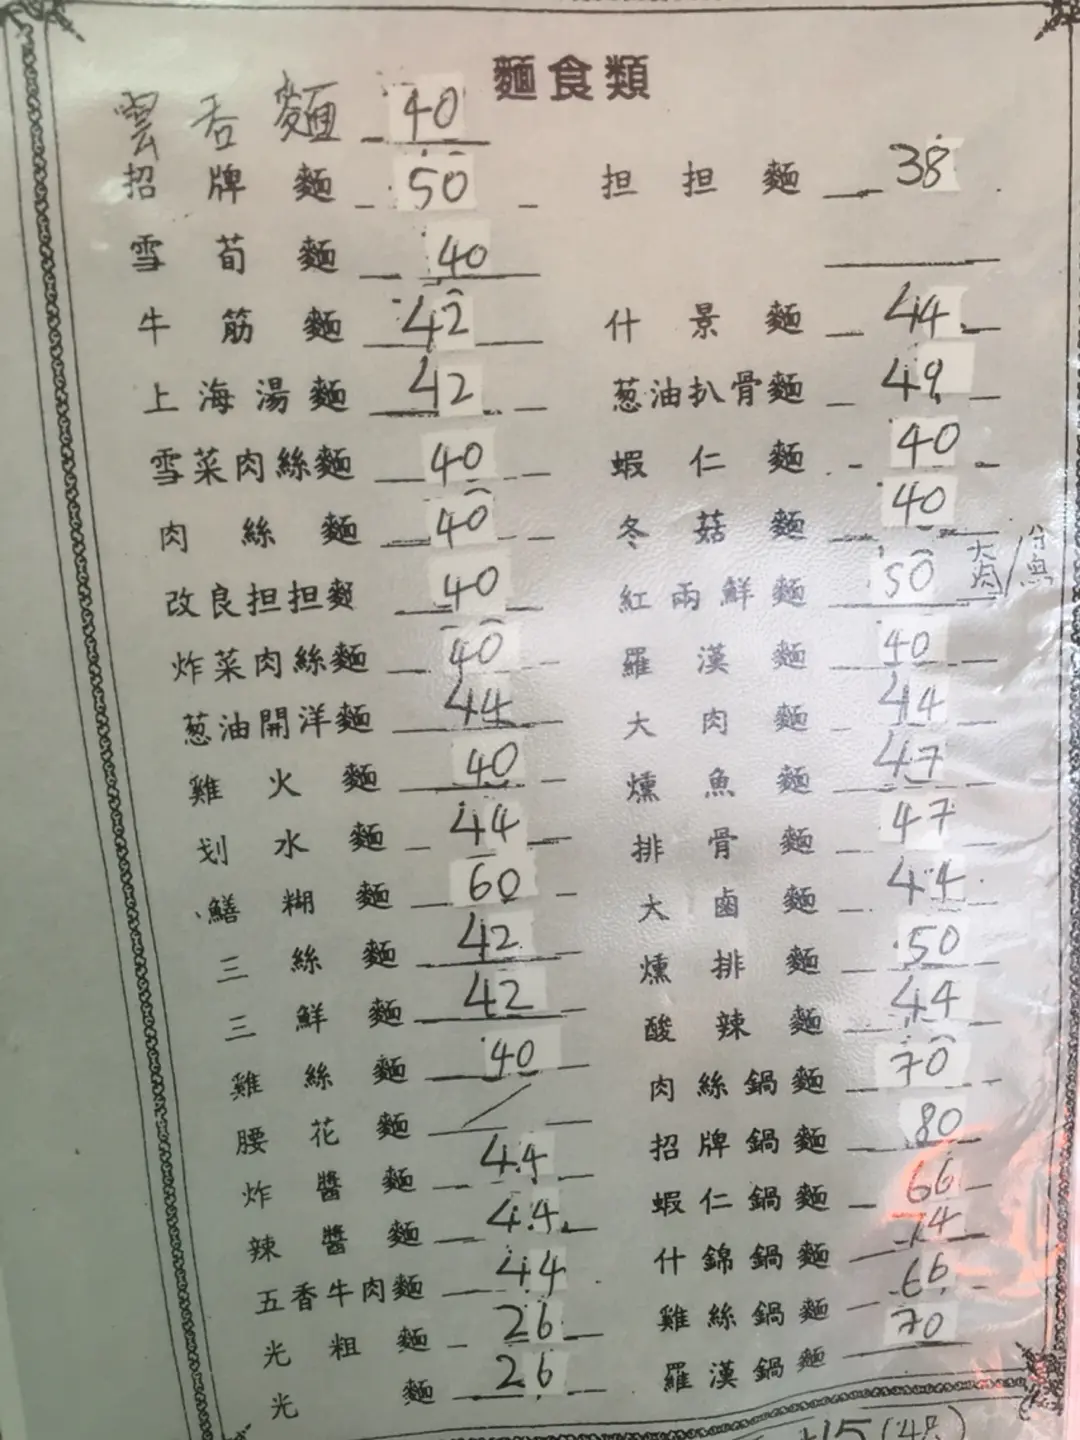 麵食類
雲吞麵 40
招牌麵 50 担担麵 38
雪荀麵 40
牛筋麵 42 什景麵 44
上海湯麵 42 葱油扒骨麵 49
雪菜肉絲麵 40 蝦仁麵 40
肉絲麵 40 冬菇麵 40
改良担担麵 40 紅兩鮮麵 50 大肉/
炸菜肉絲麵 40 羅漢麵 40
葱油開洋麵 44 大肉麵 44
雞火麵 40 燻魚麵 47
划水麵 44 排骨麵 47
鱔糊麵 60 大鹵麵 44
三絲麵 42 燻排麵 50
三鮮麵 42 酸辣麵 44
雞絲麵 40 肉絲鍋麵 70
腰花麵 / 招牌鍋麵 80
炸醬麵 44 蝦仁鍋麵 66
辣醬麵 44 什錦鍋麵 74
五香牛肉麵 44 雞絲鍋麵 66
光粗麵 26 羅漢鍋麵 70
光麵 26